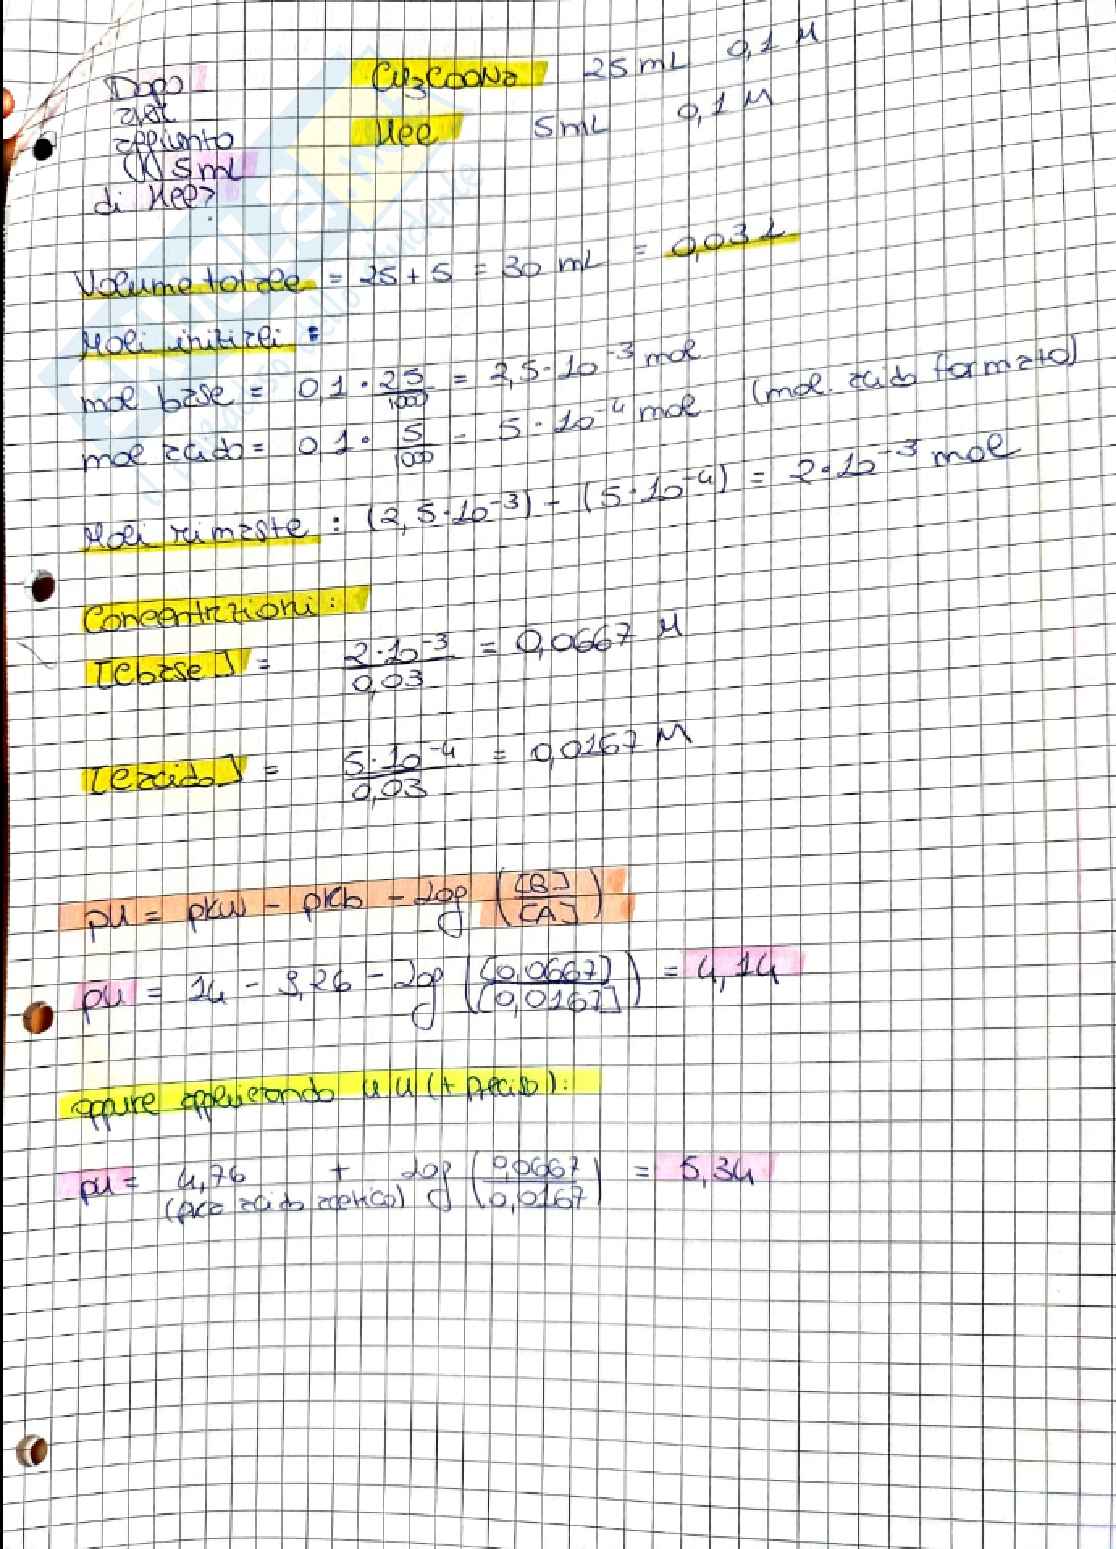 Dopo
aver
aggiunto
(V) 5 mL
di HCl?
CH3COONa 25 mL 0,1 M
HCl 5 mL 0,1 M
Volume totale = 25 + 5 = 30 mL = 0,03 L
Moli iniziali :
mol base = 0,1 · 25/1000 = 2,5 · 10⁻³ mol
mol acido = 0,1 · 5/1000 = 5 · 10⁻⁴ mol (mol. acido formato)
Moli rimaste : (2,5 · 10⁻³) - (5 · 10⁻⁴) = 2 · 10⁻³ mol
Concentrazioni :
[Cbase] = 2 · 10⁻³ / 0,03 = 0,0667 M
[Cacido] = 5 · 10⁻⁴ / 0,03 = 0,0167 M
pH = pKw - pKb - log ([B]/[A])
pH = 14 - 9,26 - log ([0,0667]/[0,0167]) = 4,14
oppure applicando H H (+ preciso) :
pH = 4,76 + log (0,0667/0,0167) = 5,34
(pKa acido acetico)